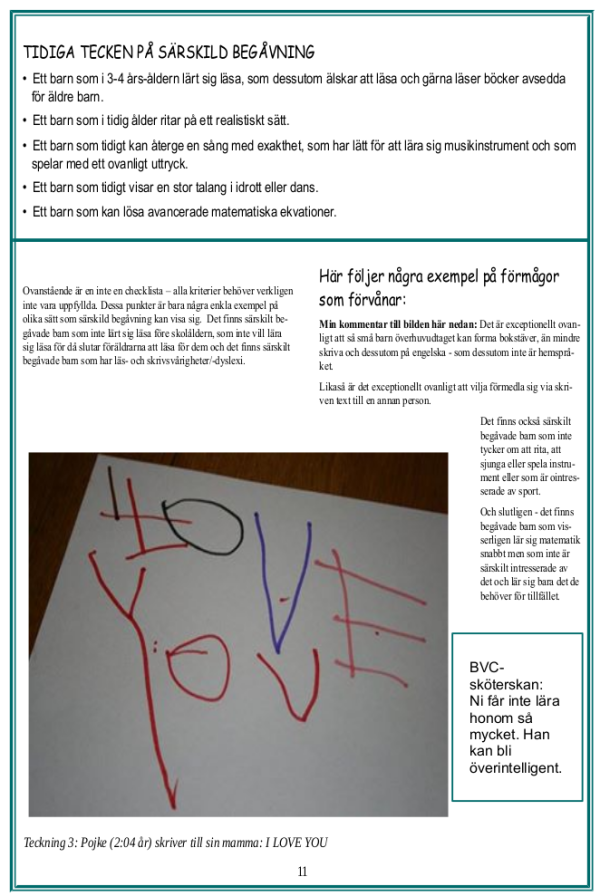 TIDIGA TECKEN PÅ SÄRSKILD BEGÅVNING
• Ett barn som i 3-4 års-åldern lärt sig läsa, som dessutom älskar att läsa och gärna läser böcker avsedda
för äldre barn.
• Ett barn som i tidig ålder ritar på ett realistiskt sätt.
• Ett barn som tidigt kan återge en sång med exakthet, som har lätt för att lära sig musikinstrument och som
spelar med ett ovanligt uttryck.
• Ett barn som tidigt visar en stor talang i idrott eller dans.
• Ett barn som kan lösa avancerade matematiska ekvationer.
Ovanstående är en inte en checklista – alla kriterier behöver verkligen
inte vara uppfyllda. Dessa punkter är bara några enkla exempel på
olika sätt som särskild begåvning kan visa sig. Det finns särskilt be-
gåvade barn som inte lärt sig läsa före skolåldern, som inte vill lära
sig läsa för då slutar föräldrarna att läsa för dem och det finns särskilt
begåvade barn som har läs- och skrivsvårigheter/-dyslexi.
Här följer några exempel på förmågor
som förvånar:
Min kommentar till bilden här nedan: Det är exceptionellt ovan-
ligt att så små barn överhuvudtaget kan forma bokstäver, än mindre
skriva och dessutom på engelska - som dessutom inte är hemsprå-
ket.
Likaså är det exceptionellt ovanligt att vilja förmedla sig via skri-
ven text till en annan person.
Det finns också särskilt
begåvade barn som inte
tycker om att rita, att
sjunga eller spela instru-
ment eller som är ointres-
serade av sport.
Och slutligen - det finns
begåvade barn som vis-
serligen lär sig matematik
snabbt men som inte är
särskilt intresserade av
det och lär sig bara det de
behöver för tillfället.
I LOVE
YOU
BVC-
sköterskan:
Ni får inte lära
honom så
mycket. Han
kan bli
överintelligent.
Teckning 3: Pojke (2:04 år) skriver till sin mamma: I LOVE YOU
11